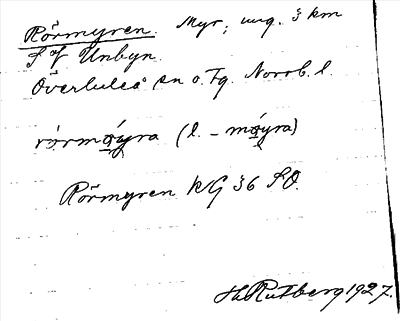 Rörmyren. Myr, ung. 3 km
S of Unbyn.
Överluleå sn o. Tg. Norrb. l.
(l. -
Rörmyren KG 36 SO.
H. Rutberg 1927.